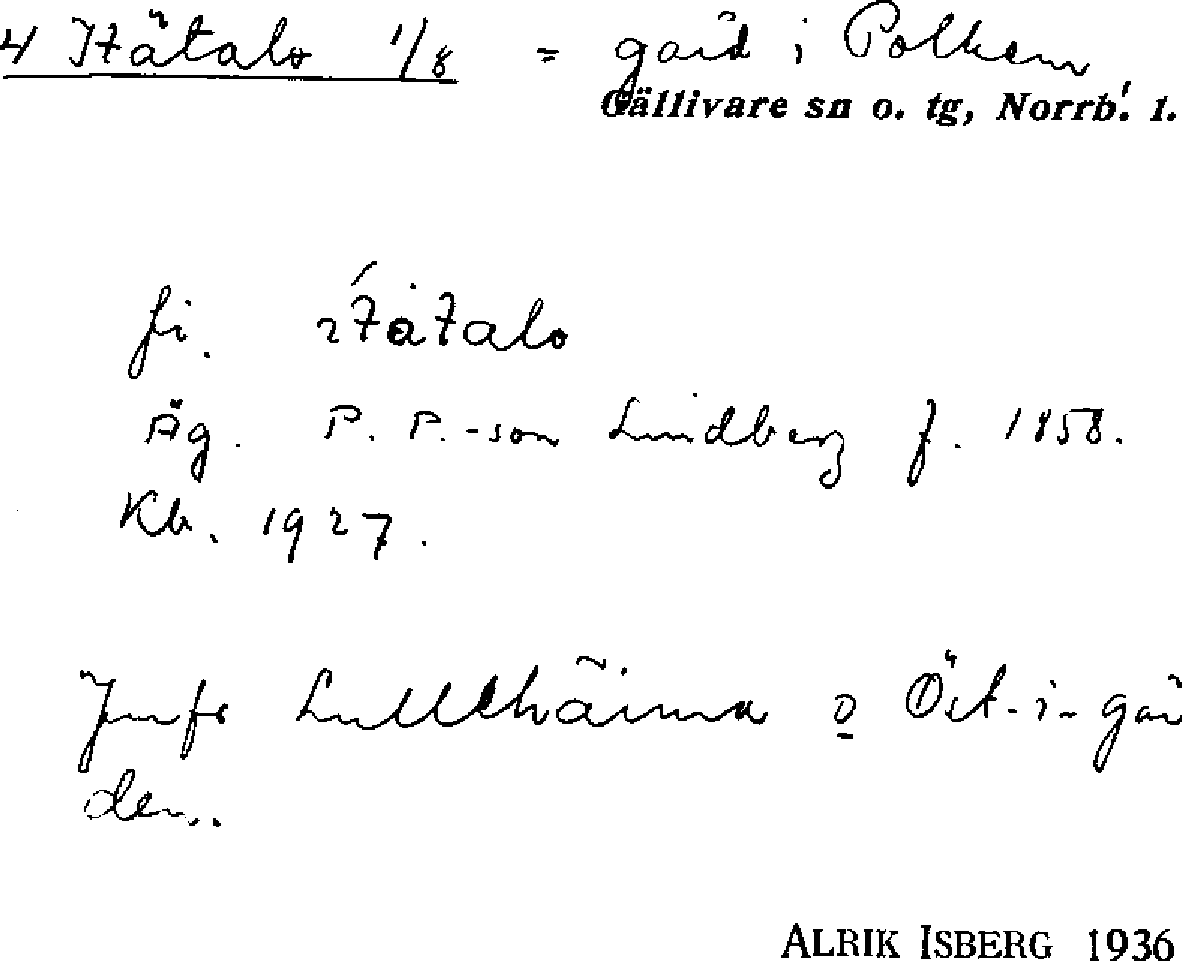 4 Itätalo 1/8 = gård i Polkem
Gällivare sn o. tg, Norrb. l.
fi. itätalo
Äg. P. P.-son Lindberg f. 1858.
Kb. 1927.
Jmfr o Öst-i-går
den.
ALRIK ISBERG 1936